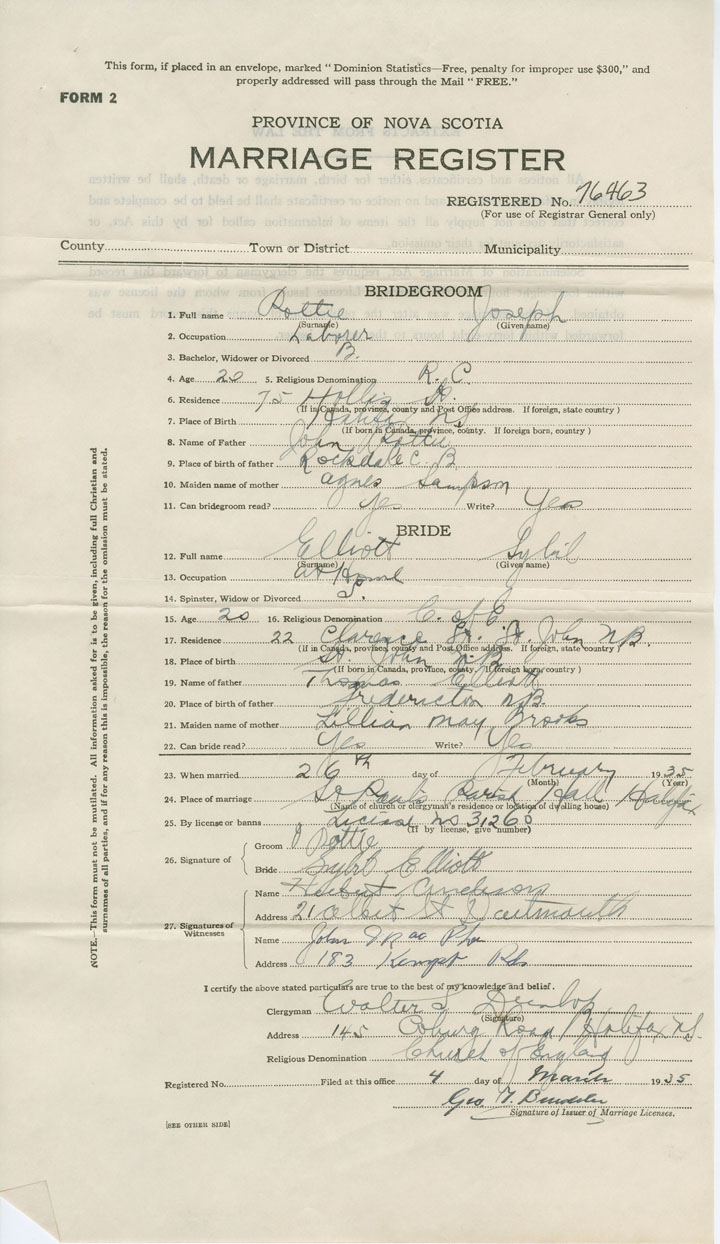 This form, if placed in an envelope, marked "Dominion Statistics—Free, penalty for improper use $300," and
properly addressed will pass through the Mail "FREE."
FORM 2
PROVINCE OF NOVA SCOTIA
MARRIAGE REGISTER
REGISTERED No. 76463
(For use of Registrar General only)
County Town or District Municipality
BRIDEGROOM
1. Full name Pottie Joseph
(Surname) (Given name)
2. Occupation Laborer
3. Bachelor, Widower or Divorced B.
4. Age 20 5. Religious Denomination R. C.
6. Residence 75 Hollis St.
(If in Canada, province, county and Post Office address. If foreign, state country)
7. Place of Birth Halifax NS
(If born in Canada, province, county. If foreign born, country)
8. Name of Father John Pottie
9. Place of birth of father Rockdale C B
10. Maiden name of mother Agnes Sampson
11. Can bridegroom read? Yes Write? Yes
BRIDE
12. Full name Elliott Sybil
(Surname) (Given name)
13. Occupation at Home
14. Spinster, Widow or Divorced S.
15. Age 20 16. Religious Denomination C. of E
17. Residence 22 Clarence St. St. John N.B.
(If in Canada, province, county and Post Office address. If foreign, state country)
18. Place of birth St. John N.B.
(If born in Canada, province, county. If foreign born, country)
19. Name of father Thomas Elliott
20. Place of birth of father Fredericton N.B.
21. Maiden name of mother Lillian May Brooks
22. Can bride read? Yes Write? Yes
23. When married 26th day of February 1935
(Month) (Year)
24. Place of marriage St Paul's Parish Hall Halifax
(Name of church or clergyman's residence or location of dwelling house)
25. By license or banns License No 31260
(If by license, give number)
26. Signature of
Groom J Pottie
Bride Sybil Elliott
27. Signatures of Witnesses
Name
Address 21 St Dartmouth
Name John
Address 183 Kempt Rd.
I certify the above stated particulars are true to the best of my knowledge and belief.
Clergyman Walter S Dunlop
(Signature)
Address 145 Coburg Road Halifax N.S.
Religious Denomination Church of England
Registered No. Filed at this office 4 day of March 1935
Geo.
Signature of Issuer of Marriage Licenses.
[SEE OTHER SIDE]
NOTE.—This form must not be mutilated. All information asked for is to be given, including full Christian and
surnames of all parties, and if for any reason this is impossible, the reason for the omission must be stated.